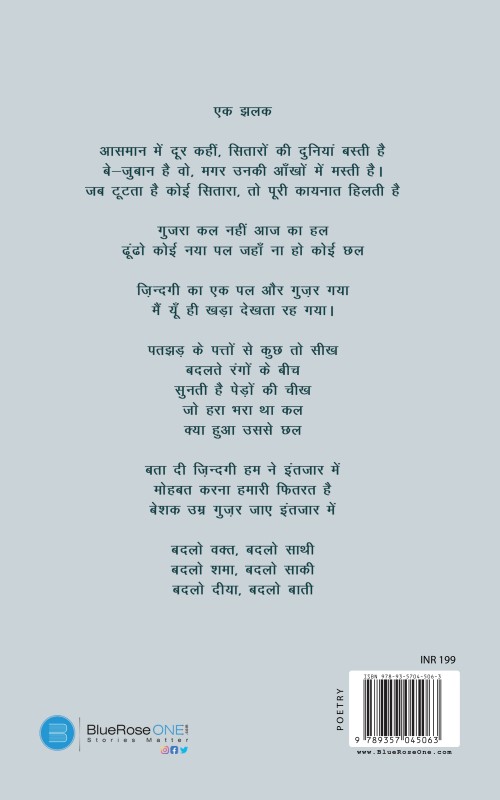 एक झलक
आसमान में दूर कहीं, सितारों की दुनियां बस्ती है
बे–जुबान है वो, मगर उनकी आँखों में मस्ती है।
जब टूटता है कोई सितारा, तो पूरी कायनात हिलती है
गुजरा कल नहीं आज का हल
ढूंढो कोई नया पल जहाँ ना हो कोई छल
ज़िन्दगी का एक पल और गुज़र गया
मैं यूँ ही खड़ा देखता रह गया।
पतझड़ के पत्तों से कुछ तो सीख
बदलते रंगों के बीच
सुनती है पेड़ों की चीख
जो हरा भरा था कल
क्या हुआ उससे छल
बता दी ज़िन्दगी हम ने इंतजार में
मोहबत करना हमारी फितरत है
बेशक उम्र गुज़र जाए इंतजार में
बदलो वक्त, बदलो साथी
बदलो शमा, बदलो साकी
बदलो दीया, बदलो बाती
INR 199
POETRY
ISBN 978-93-5704-506-3
9 789357 045063
www.BlueRoseOne.com
BlueRoseONE.com
Stories Matter